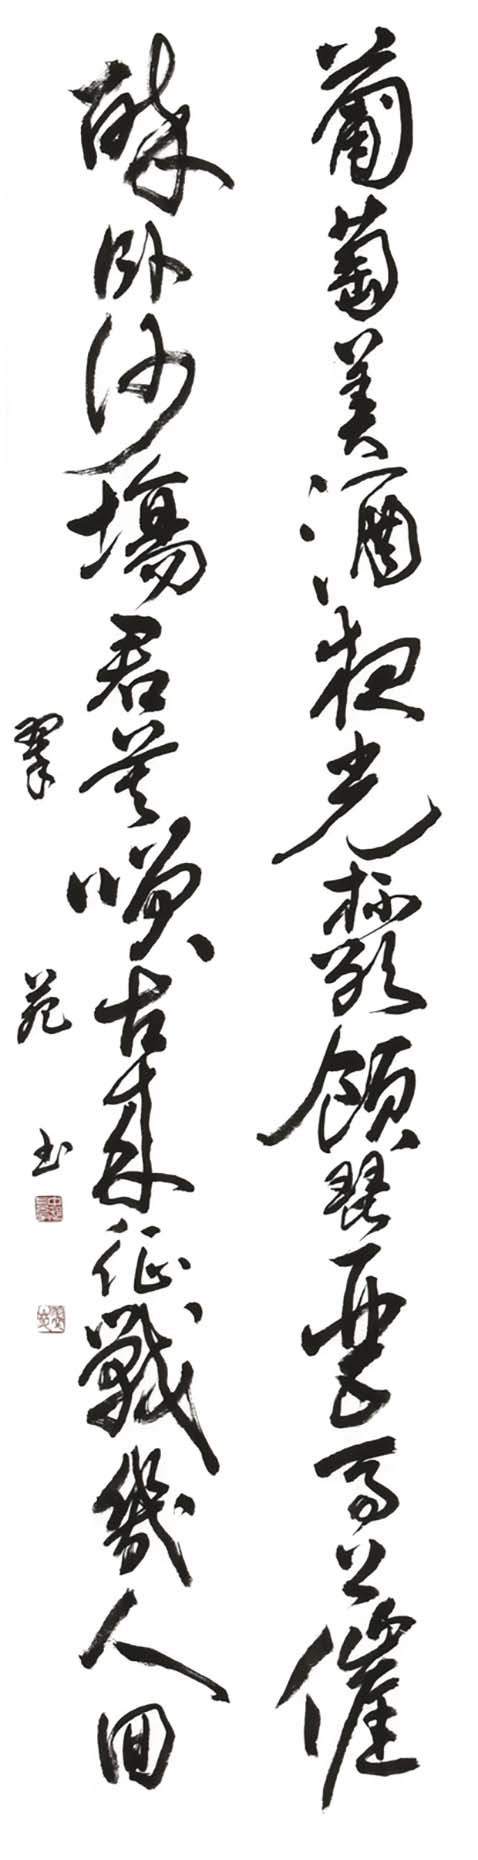 葡萄美酒夜光杯欲飲琵琶馬上催
醉臥沙場君莫咲古來征戰幾人回
翠苑書